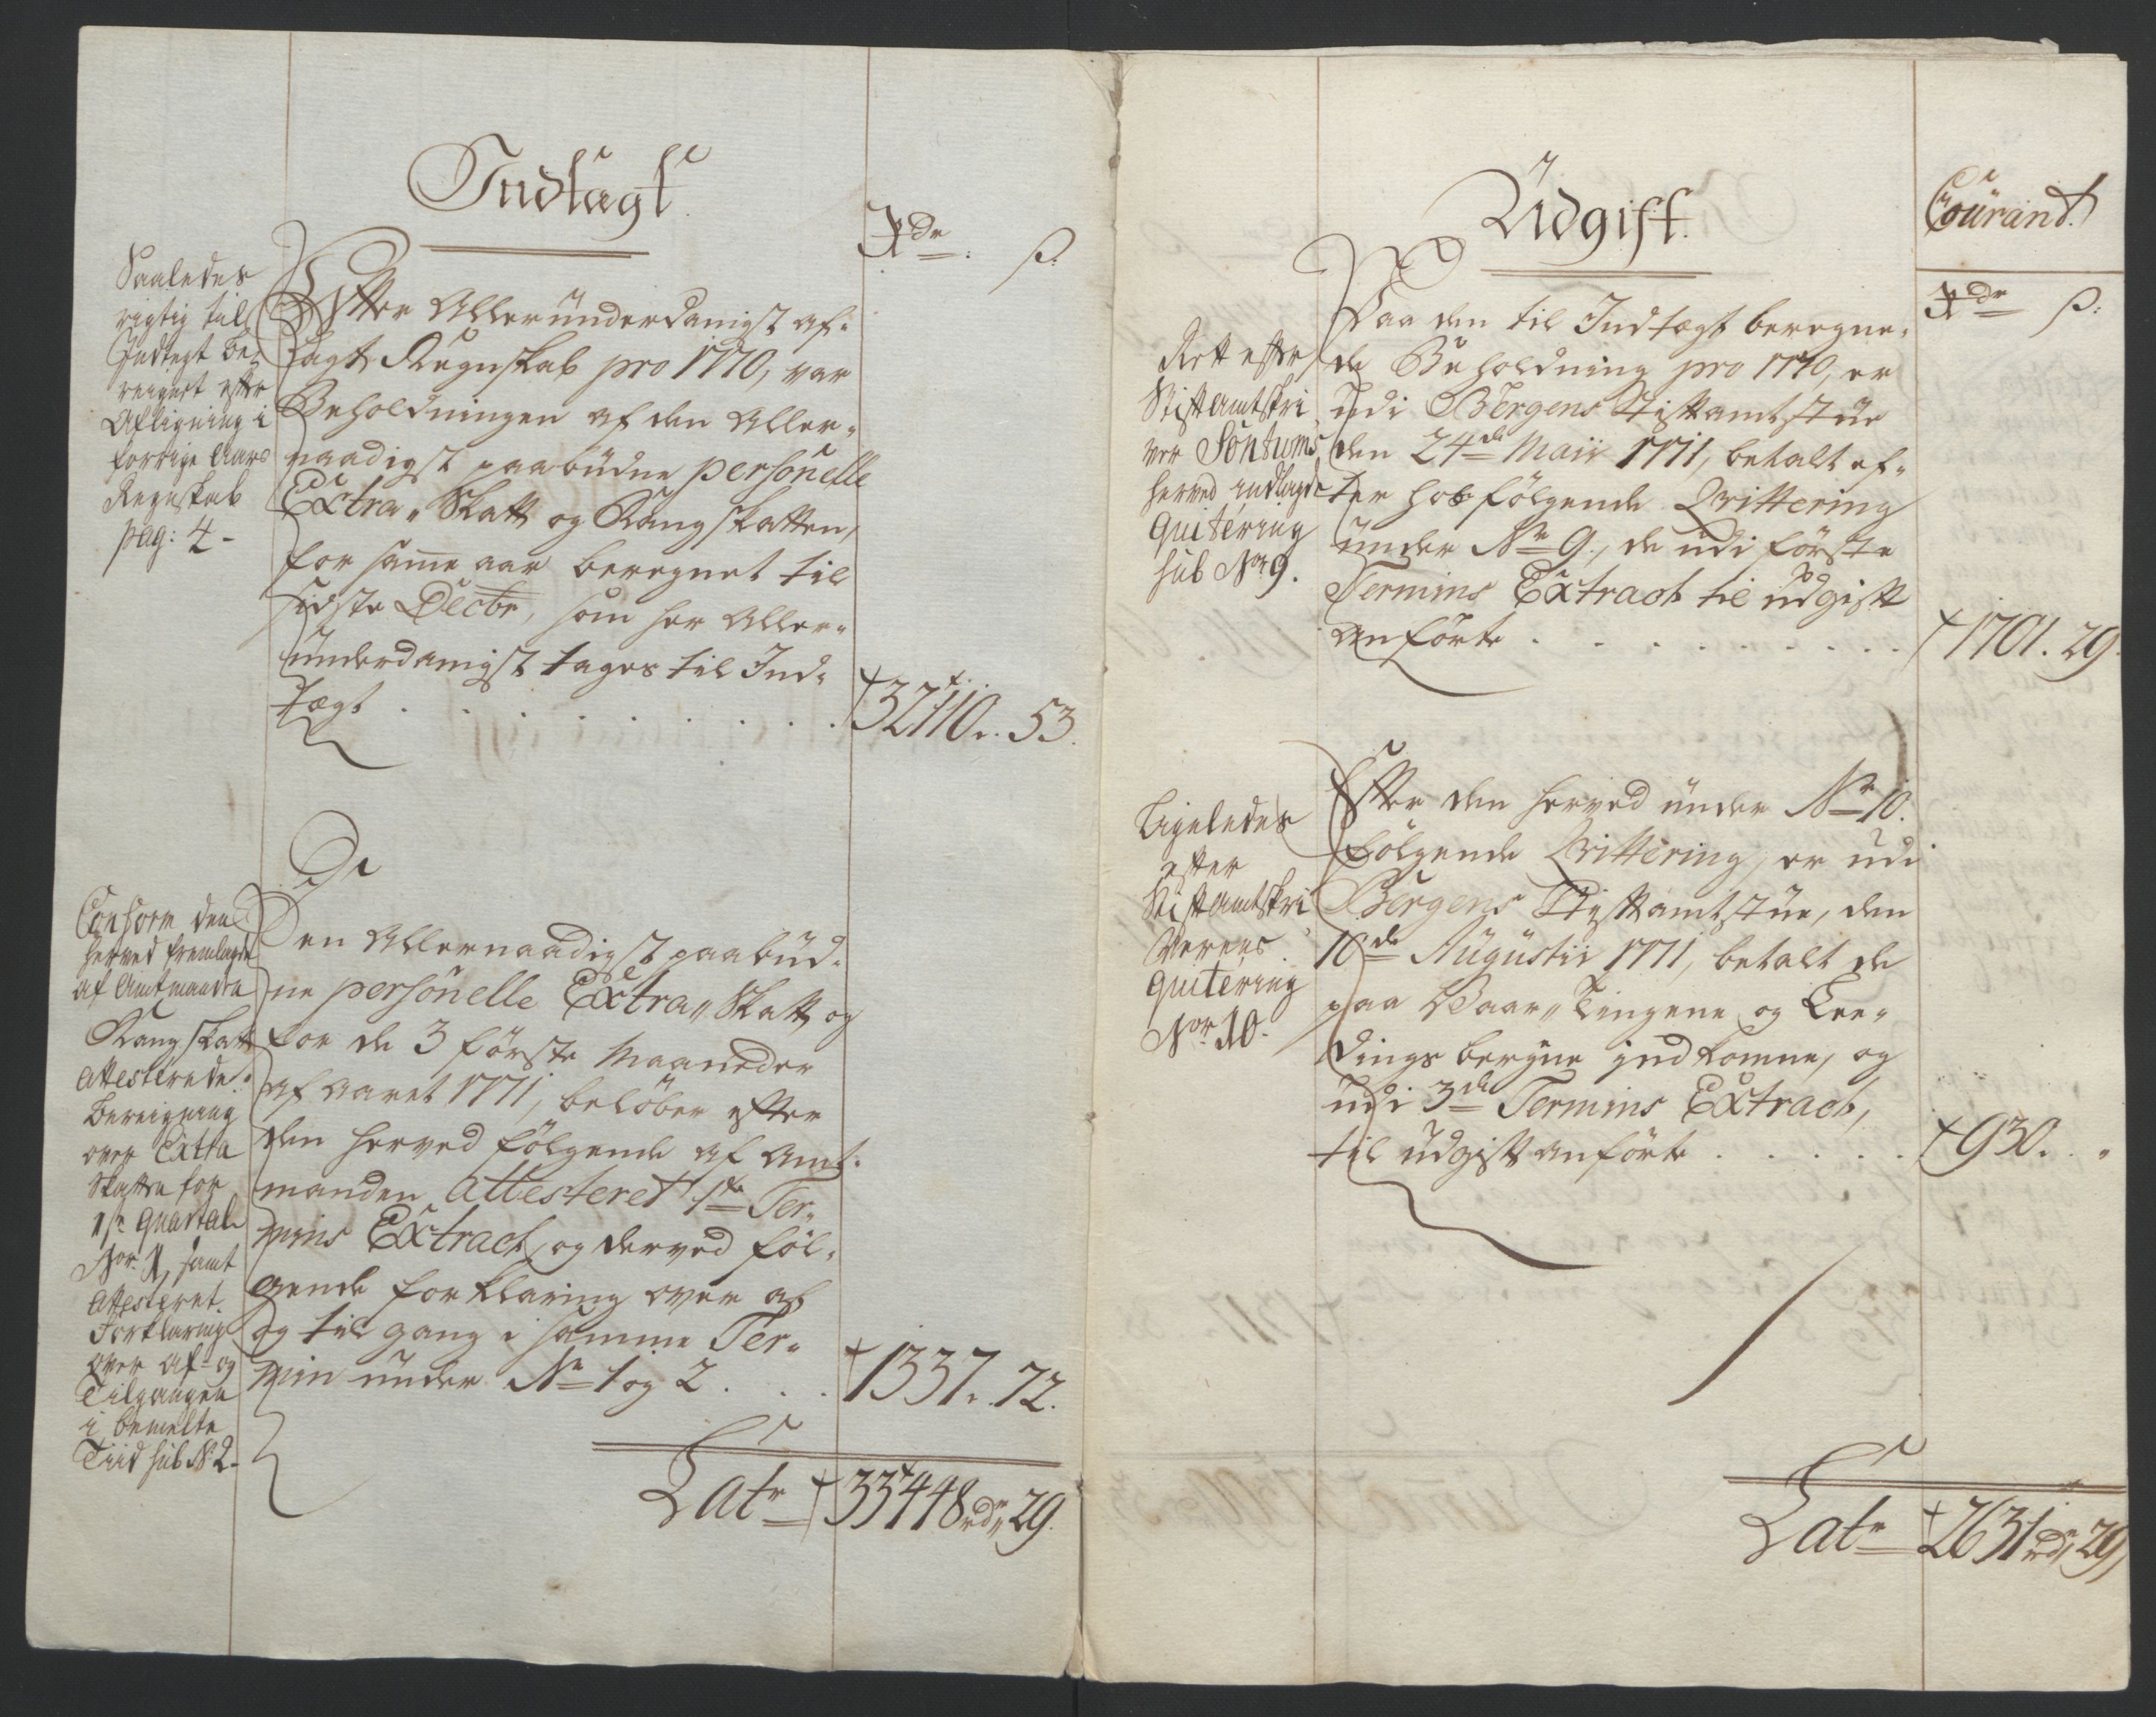 Indtægt
Rdr ß:
Saaledes
rigtig til
Indtegt be-
reignet efter
Afligning i
forrige Aars
Regnskab
pag: 4-
Efter Alleründerdanigst af-
lagt Regnskab pro 1770, var
Beholdningen af den Aller-
naadigst paabüdne personelle
Extra Skatt og Rangskatten,
for same aar beregnet til
sidste Decbr, som her Aller-
ünderdanigst tages til Ind-
tægt . . . . . . . . 32110. 53.
Conform den
herved fremlagde
af Amtmanden
Rangskatt
attesterede
Bereigning
over Extra
Skatten for
1ste Quartal
Nor. 1, samt
Attesteret
Forklaring
over af- og
Tilgangen
i bemelte
Tiid sub No 2.
Den Allernaadigst paabüd-
ne personelle Extra Skatt og
for de 3 förste Maaneder
af Aaret 1771, belöber efter
den herved fölgende af Amt-
manden Attesteret 1te Ter-
mins Extract, og derved föl-
gende forklaring over af
og til gang i samme Ter-
min ünder No 1 og 2 . . . 1337. 72.
Latr 33448 rdr 29.
Udgift.
Courant.
Rdr ß:
Rett efter
Stiftamtskri
ver Söntums
herved indlagde
Quitering
sub Nor 9.
Paa den til Indtægt beregne-
de Beholdning pro 1770, er
udi Bergens Stiftamtstue
den 24de Maii 1771, betalt ef-
ter hosfölgende Qvittering
ünder No 9, de udi förste
Termins Extract til üdgift
anförte . . . . . . . . 1701. 29.
Ligeledes
efter
Stiftamtskri
verens
Quitering
Nor 10.
Efter den herved ünder No 10.
fölgende Qvittering, er udi
Bergens Stiftamtstüe, den
10de Augustii 1771, betalt de
paa Waar Tingene og Lee-
dings bergne indkomne, og
udi 3de Termins Extract,
til üdgift anförte . . . . . 930. "
Latr 2631 rdr 29